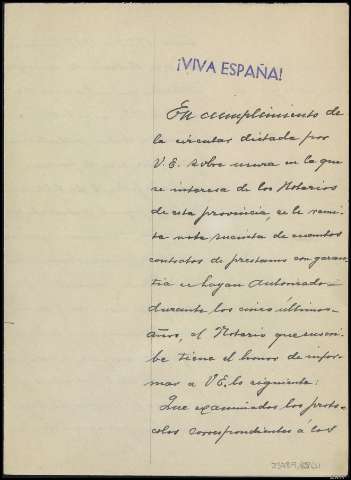 ¡VIVA ESPAÑA!
En cumplimiento de
la circular dictada por
V.E. sobre usura en la que
se interesa de los Notarios
de esta provincia, se le remi-
ta nota sucinta de cuantos
contratos de prestamos con garan-
tia se hayan autorizado
durante los cinco últimos
años, el Notario que suscri-
be tiene el honor de infor-
mar a V.E. lo siguiente:
Que examinados los proto-
colos correspondientes a los